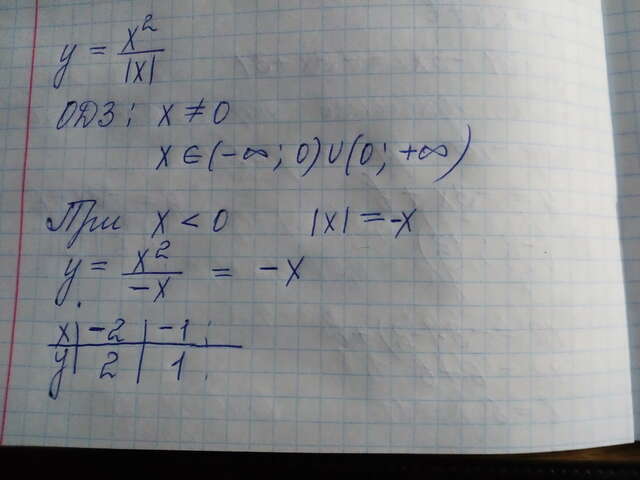 y = x²/|x|
ОДЗ: x ≠ 0
x ∈ (-∞; 0) ∪ (0; +∞)
При x < 0 |x| = -x
y = x²/-x = -x
x | -2 | -1
y | 2 | 1